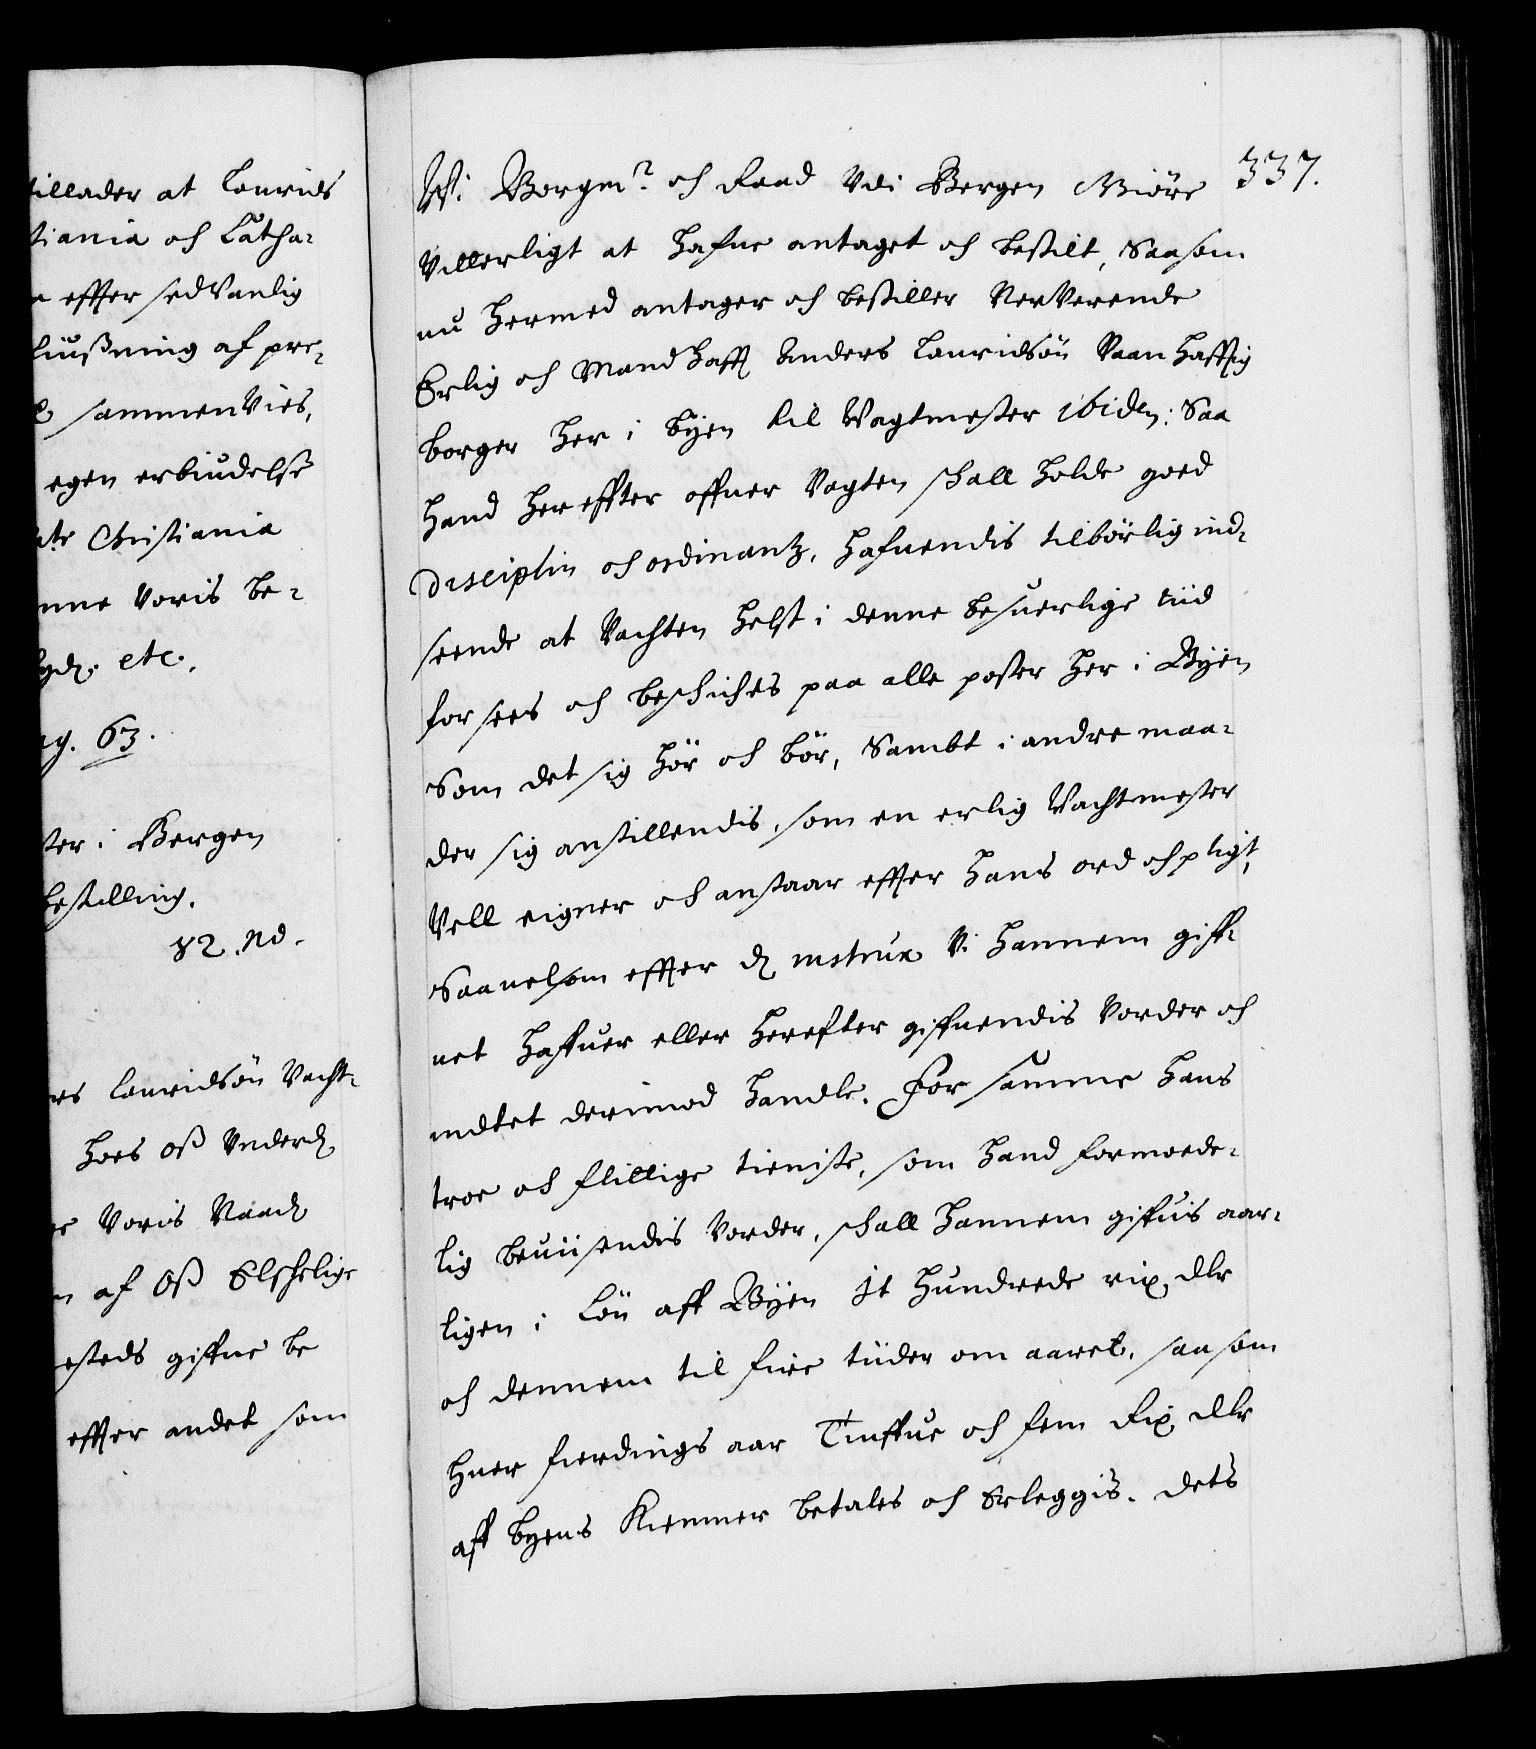 tillader at Laurids
tiania och Catha-
effter sedvanlig
liußning af pre-
sammenVies,
egen erbiudelse
Christiania
Voris be-
etc.
63.
ter i Bergen
bestilling.
82. Nd.
Lauridsøn Vacht-
hoes oß Vnderd
Voris Naad
af Oß Elskelige
steds giffne be
effter andet som
337.
Wi Borgm? och Raad Vdi Bergen Giøre
Vitterligt at hafue antaget och bestilt, Saasom
nu hermed antager och bestiller NerVerende
Erlig och Mandhafft Anders Lauridsøn Vaanhafftig
borger her i byen til Vagtmester ibidem: Saa
hand her effter offuer Vagten skall holde goed
Disciplin och ordinantz, hafuendis tilbørlig ind-
seende at Vachten helst i denne besuerlige tiid
forsees och beskickes paa alle poster her i Byen
Som det sig hør och bør, Sambt i andre maa-
der sig anstillendis, som en erlig Vachtmester
Vell eigner och anstaar effter hans ord och pligt,
Saauelsom effter d instrux Vi hannem giff-
uet haffuer eller herefter giffuendis Vorder och
indtet derimod handle. For samme hans
troe och flittige tieniste, som hand formode-
lig beuiisendis Vorder, skall hannem giffuis aar-
ligen i Løn aff Byen Jt hundrede rix dlr
och dennem til fiire tiider om aaret, saasom
huer fierdings aar Tiuffue och fem Rix dlr
aff byens Kiemner betales och Erleggis. dets